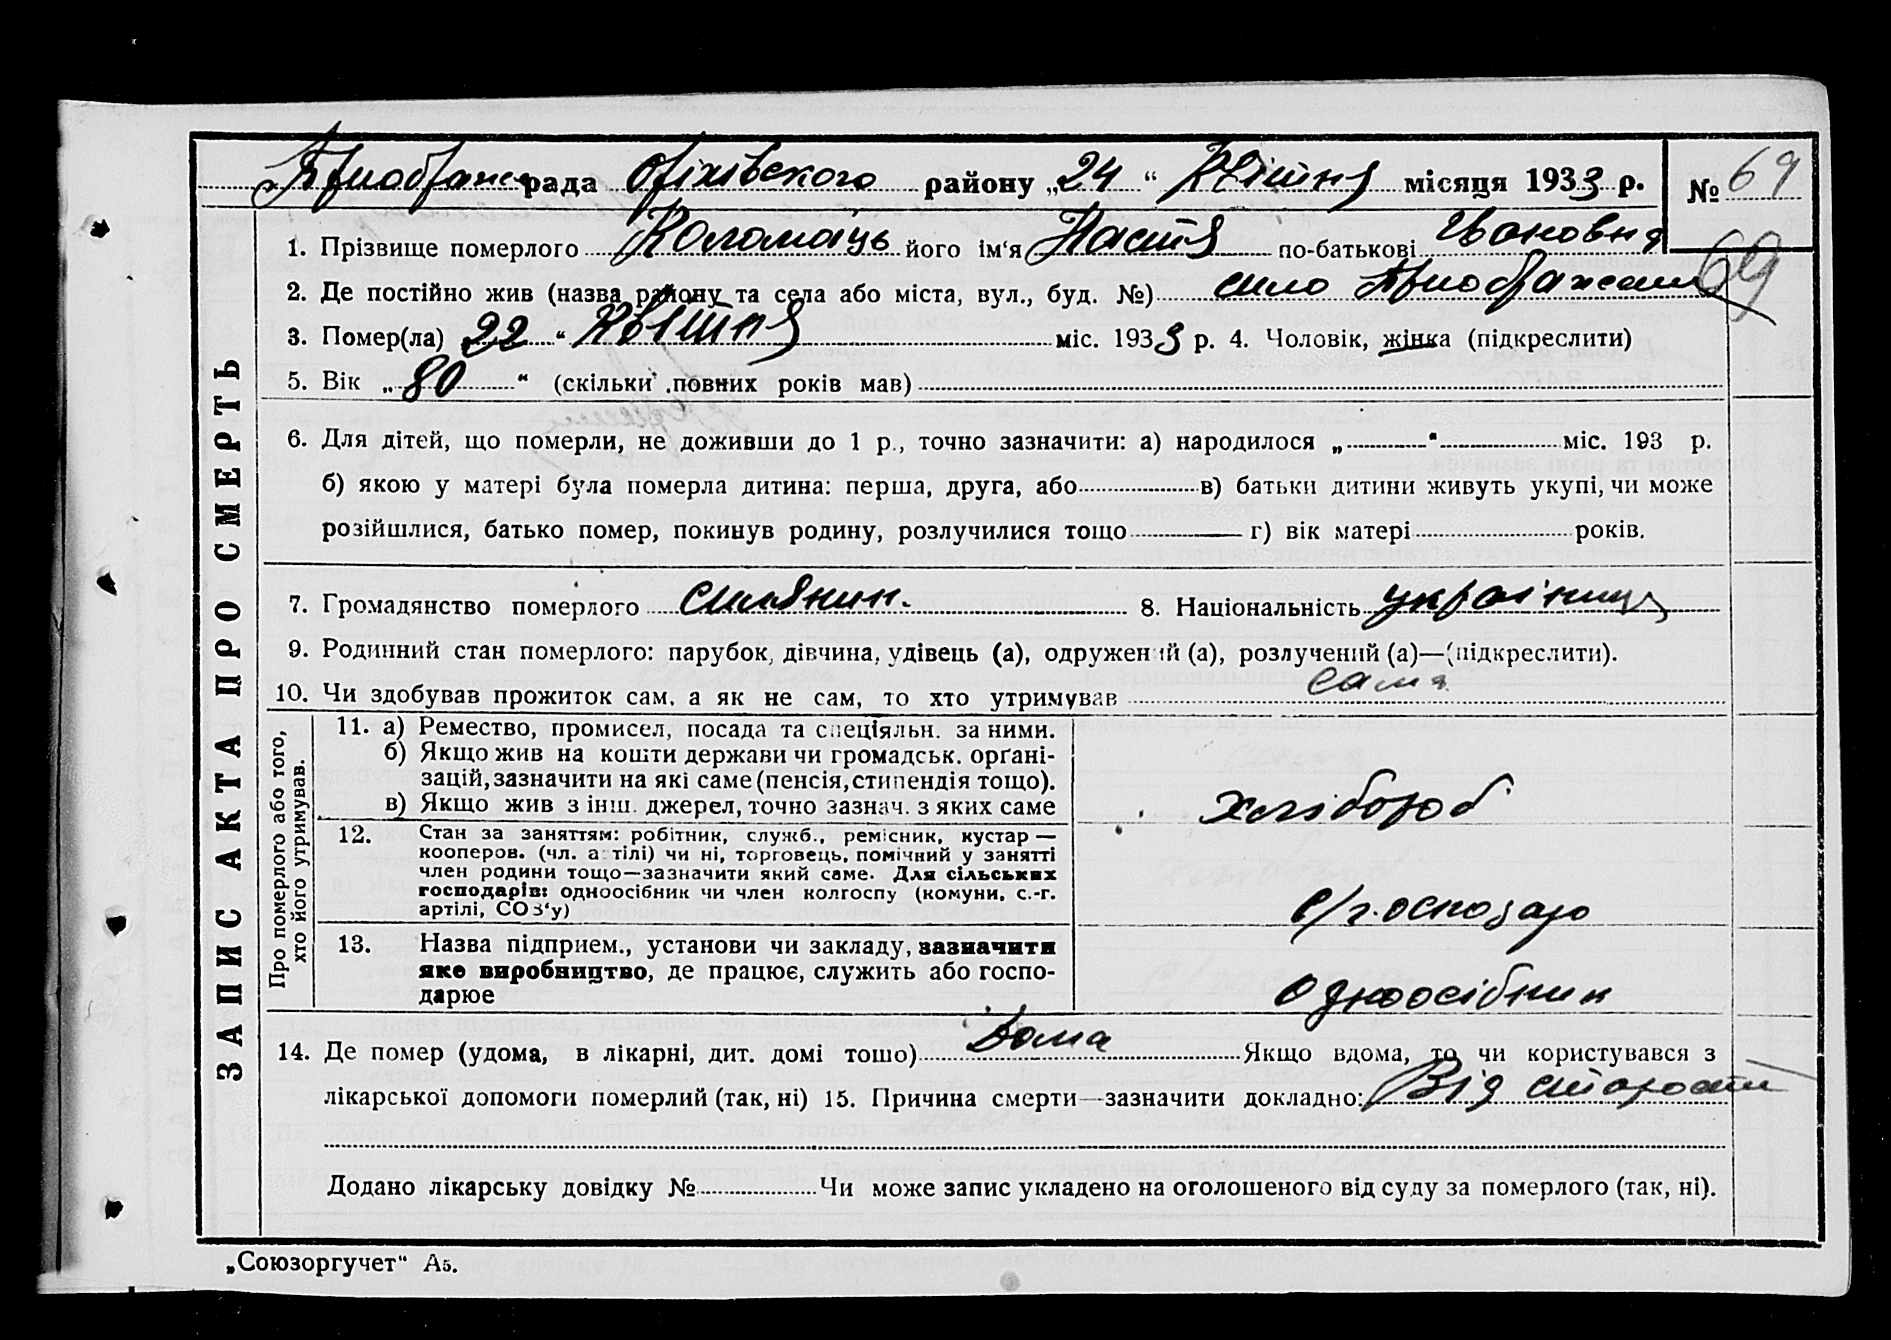 Приображенс рада Оріхівского району „24“ Квітня місяця 1933 р. № 69
1. Прізвище померлого Коломаць його ім‘я Настя по-батькові Івановна
69
2. Де постійно жив (назва району та села або міста, вул., буд. №) село
3. Помер(ла) 22 “ Квітня міс. 1933 р. 4. Чоловік, жінка (підкреслити)
5. Вік „80“ (скільки повних років мав)
6. Для дітей, що померли, не доживши до 1 р., точно зазначити: а) народилося „ “ міс. 193 р.
б) якою у матері була померла дитина: перша, друга, або в) батьки дитини живуть укупі, чи може
розійшлися, батько помер, покинув родину, розлучилися тощо г) вік матері років.
7. Громадянство померлого селянин. 8. Національність українка
9. Родинний стан померлого: парубок, дівчина, удівець (а), одружений (а), розлучений (а)—(підкреслити).
10. Чи здобував прожиток сам, а як не сам, то хто утримував сама
11. а) Ремество, промисел, посада та спеціяльн. за ними.
б) Якщо жив на кошти держави чи громадськ. орґані-
зацій, зазначити на які саме (пенсія, стипендія тощо).
в) Якщо жив з інш. джерел, точно зазнач. з яких саме
хлібороб
12. Стан за заняттям: робітник, служб., ремісник, кустар —
кооперов. (чл. артілі) чи ні, торговець, помічний у занятті
член родини тощо—зазначити який саме. Для сільських
господарів: одноосібник чи член колгоспу (комуни, с.-г.
артілі, СОЗ‘у)
с/господар
13. Назва підприем., установи чи закладу, зазначити
яке виробництво, де працює, служить або госпо-
дарюе
одноосібник
14. Де помер (удома, в лікарні, дит. домі тошо) Дома Якщо вдома, то чи користувався з
лікарської допомоги померлий (так, ні) 15. Причина смерти—зазначити докладно: Від старости
Додано лікарську довідку № Чи може запис укладено на оголошеного від суду за померлого (так, ні).
ЗАПИС АКТА ПРО СМЕРТЬ
Про померлого або того,
хто його утримував.
„Союзоргучет“ А5.